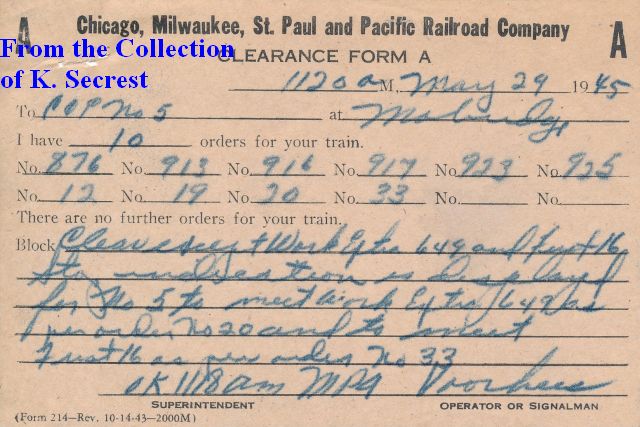 A Chicago, Milwaukee, St. Paul and Pacific Railroad Company A
From the Collection
of K. Secrest
CLEARANCE FORM A
1120 a M, May 29 1945
To C&E No 5 at Mobridge
I have 10 orders for your train.
No. 876 No. 913 No. 916 No. 917 No. 923 No. 925
No. 12 No. 19 No. 20 No. 33 No. No.
There are no further orders for your train.
Block Clear except Work Extra 649 and First 16
Stop indication is displayed
for No 5 to meet Work Extra 649 as
per order No 20 and to meet
First 16 as per order No 33
OK 1118am MPA Voorhees
SUPERINTENDENT OPERATOR OR SIGNALMAN
(Form 214—Rev. 10-14-43—2000M)